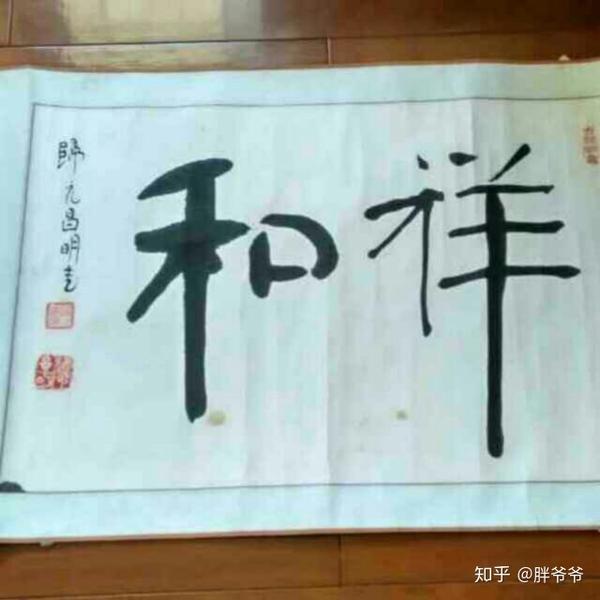 祥和
歸元昌明
知乎 @胖爷爷